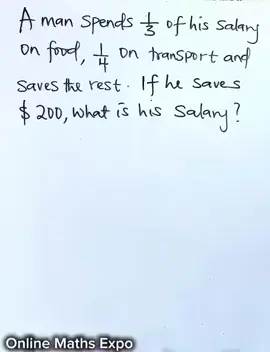 A man spends 1/3 of his salary
on food, 1/4 on transport and
saves the rest. If he saves
$ 200, what is his salary?
Online Maths Expo